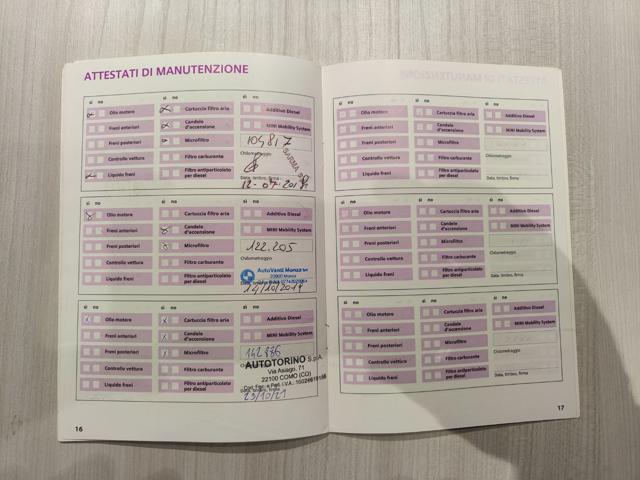 ATTESTATI DI MANUTENZIONE
sì no
sì no
sì no
Olio motore
Cartuccia filtro aria
Additivo Diesel
Freni anteriori
Candele d'accensione
MINI Mobility System
Freni posteriori
Microfiltro
104817
Controllo vettura
Filtro carburante
Chilometraggio
Liquido freni
Filtro antiparticolato per diesel
Data, timbro, firma
sì no
sì no
Olio motore
Cartuccia filtro aria
Additivo Diesel
Freni anteriori
Candele d'accensione
MINI Mobility System
Freni posteriori
Microfiltro
122.205
Controllo vettura
Filtro carburante
Chilometraggio
Liquido freni
Filtro antiparticolato per diesel
AutoVanti Monza
20900 Monza
14/10/2019
sì no
sì no
Olio motore
Cartuccia filtro aria
Additivo Diesel
Freni anteriori
Candele d'accensione
MINI Mobility System
Freni posteriori
Microfiltro
142886
Controllo vettura
Filtro carburante
Liquido freni
Filtro antiparticolato per diesel
AUTOTORINO S.p.A.
Via Asiago, 71
22100 COMO (CO)
23/10/21
16
sì no
sì no
sì no
Olio motore
Cartuccia filtro aria
Additivo Diesel
Freni anteriori
Candele d'accensione
MINI Mobility System
Freni posteriori
Microfiltro
Controllo vettura
Filtro carburante
Chilometraggio
Liquido freni
Filtro antiparticolato per diesel
Data, timbro, firma
sì no
sì no
Olio motore
Cartuccia filtro aria
Additivo Diesel
Freni anteriori
Candele d'accensione
MINI Mobility System
Freni posteriori
Microfiltro
Controllo vettura
Filtro carburante
Chilometraggio
Liquido freni
Filtro antiparticolato per diesel
Data, timbro, firma
sì no
sì no
Olio motore
Cartuccia filtro aria
Additivo Diesel
Freni anteriori
Candele d'accensione
MINI Mobility System
Freni posteriori
Microfiltro
Controllo vettura
Filtro carburante
Chilometraggio
Liquido freni
Filtro antiparticolato per diesel
Data, timbro, firma
17